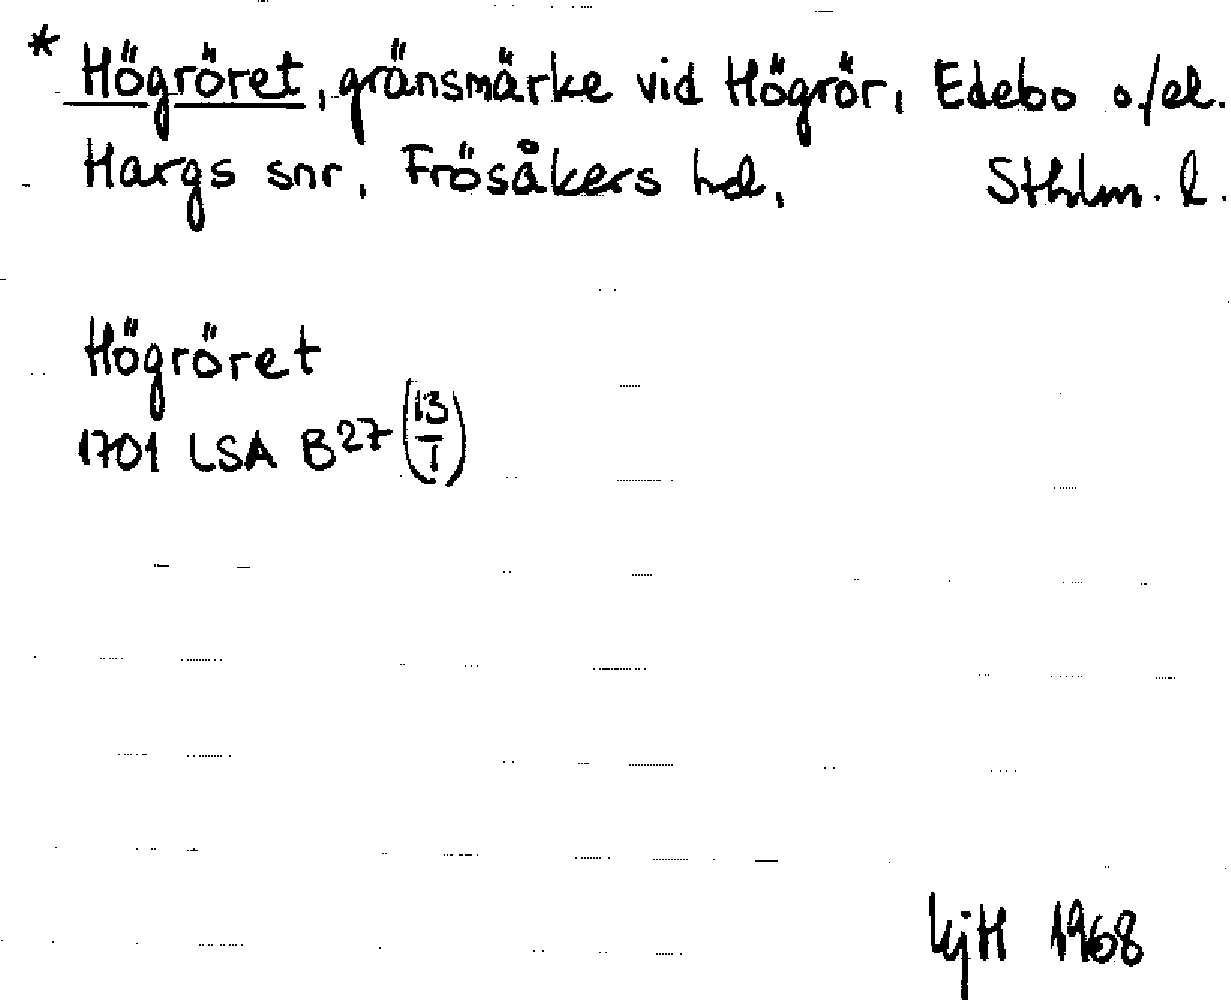 * Högröret, gränsmärke vid Högrör, Edebo o./el.
Hargs snr, Frösåkers hd, Sthlm. l.
Högröret
1701 LSA B27 (13/1)
KjH 1968